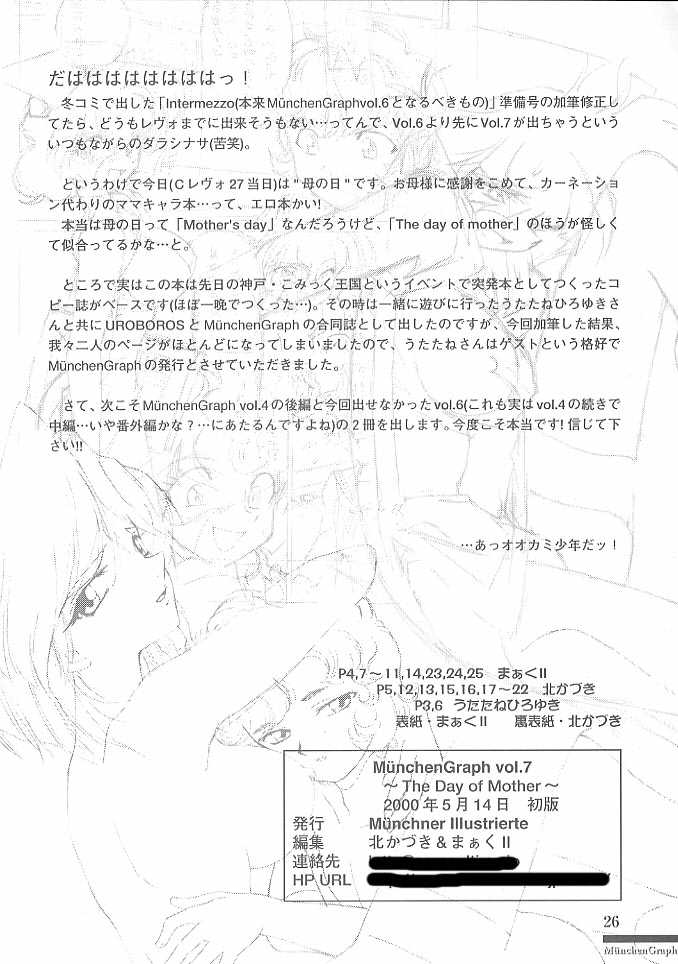 だはははははははははっ！
冬コミで出した「Intermezzo(本来MünchenGraphvol.6となるべきもの)」準備号の加筆修正し
てたら、どうもレヴォまでに出来そうもない…ってんで、Vol.6より先にVol.7が出ちゃうという
いつもながらのダラシナサ(苦笑)。
というわけで今日(Cレヴォ27当日)は"母の日"です。お母様に感謝をこめて、カーネーション
代わりのママキャラ本…って、エロ本かい!
本当は母の日って「Mother's day」なんだろうけど、「The day of mother」のほうが怪しく
て似合ってるかな…と。
ところで実はこの本は先日の神戸・こみっく王国というイベントで突発本としてつくったコ
ピー誌がベースです(ほぼ一晩でつくった…)。その時は一緒に遊びに行ったうたたねひろゆきさ
んと共にUROBOROSとMünchenGraphの合同誌として出したのですが、今回加筆した結果、
我々二人のページがほとんどになってしまいましたので、うたたねさんはゲストという格好で
MünchenGraphの発行とさせていただきました。
さて、次こそMünchenGraph vol.4の後編と今回出せなかったvol.6(これも実はvol.4の続きで
中編…いや番外編かな？…にあたるんですよね)の２冊を出します。今度こそ本当です! 信じて下
さい!!
…あっオオカミ少年だッ！
P4,7～11,14,23,24,25 まぁくII
P5,12,13,15,16,17～22 北かづき
P3,6 うたたねひろゆき
表紙・まぁくII 裏表紙・北かづき
MünchenGraph vol.7
～The Day of Mother～
2000年5月14日 初版
発行 Münchner Illustrierte
編集 北かづき＆まぁくII
連絡先
HP URL
26
MünchenGraph